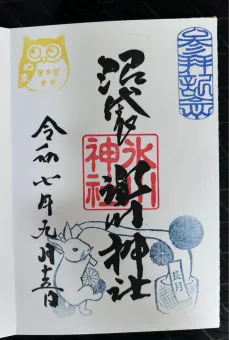 参拝記念
沼袋
氷川神社
氷川
神社
令和七年九月十三日
ぬま